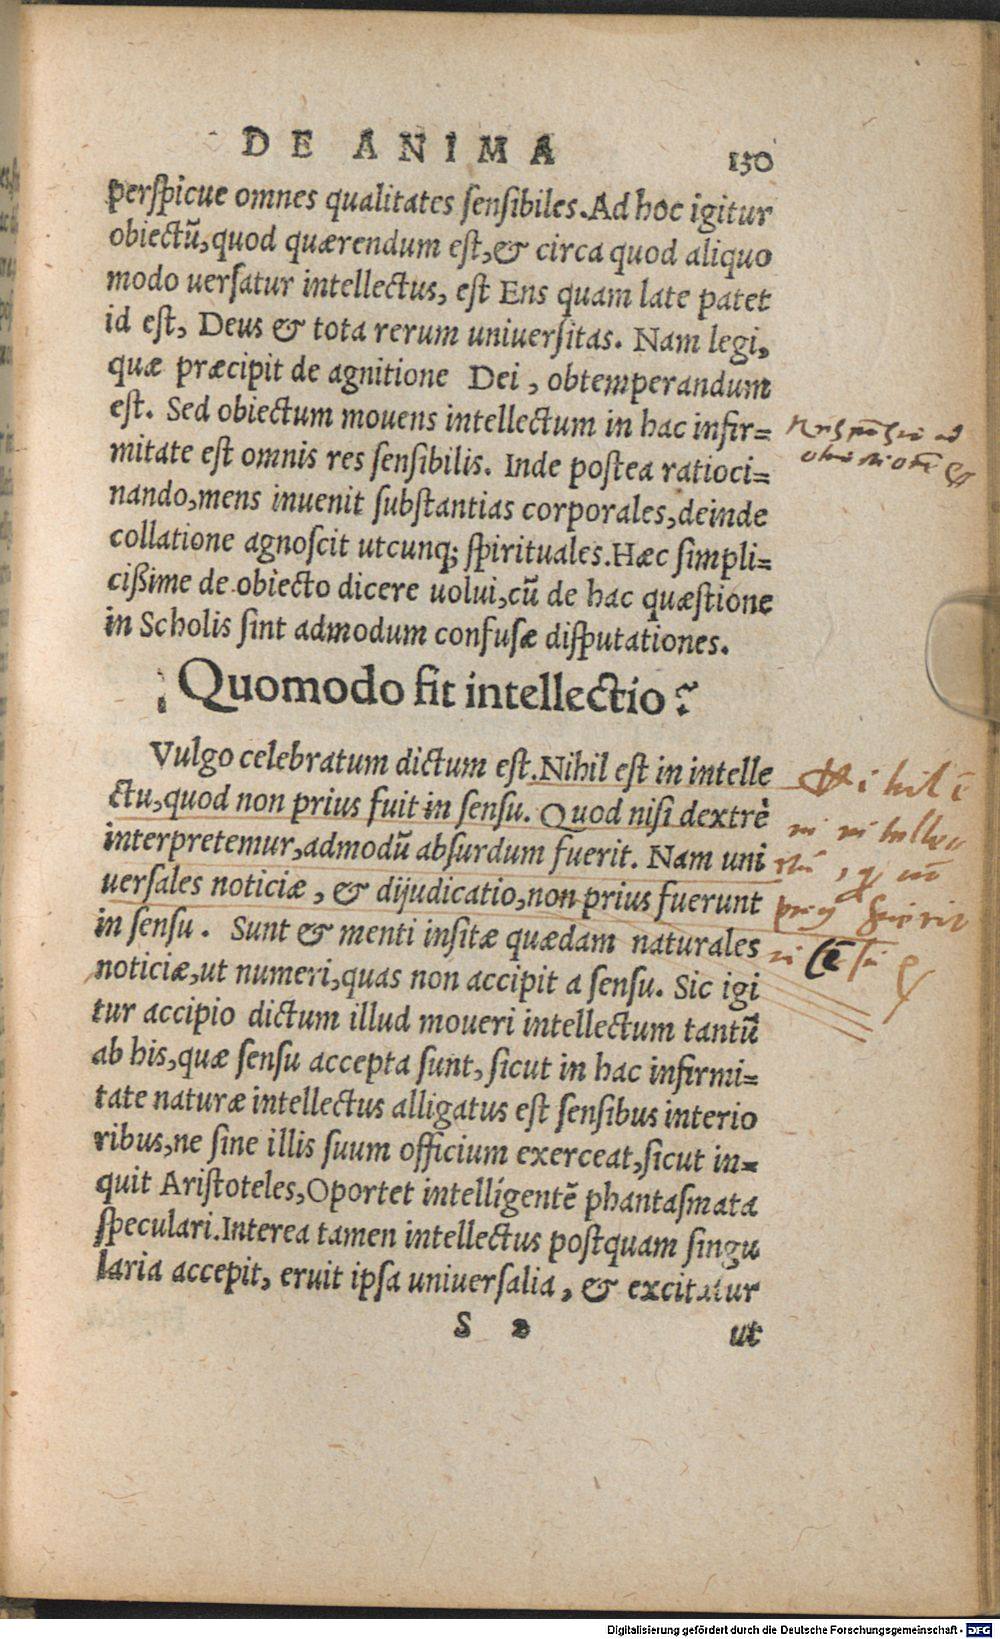 DE ANIMA
150
perſpicue omnes qualitates ſenſibiles. Ad hoc igitur
obiectũ, quod quærendum eſt, & circa quod aliquo
modo uerſatur intellectus, eſt Ens quam late patet
id eſt, Deus & tota rerum uniuerſitas. Nam legi,
quæ præcipit de agnitione Dei, obtemperandum
eſt. Sed obiectum mouens intellectum in hac infir=
mitate eſt omnis res ſenſibilis. Inde poſtea ratioci=
nando, mens inuenit ſubſtantias corporales, deinde
collatione agnoſcit utcunq; ſpirituales. Hæc ſimpli=
cißime de obiecto dicere uolui, cũ de hac quæſtione
in Scholis ſint admodum confuſæ diſputationes.
Quomodo fit intellectio?
Vulgo celebratum dictum eſt. Nihil eſt in intelle
ctu, quod non prius fuit in ſenſu. Quod niſi dextrè
interpretemur, admodũ abſurdum fuerit. Nam uni
uerſales noticiæ, & dijudicatio, non prius fuerunt
in ſenſu. Sunt & menti inſitæ quædam naturales
noticiæ, ut numeri, quas non accipit a ſenſu. Sic igi
tur accipio dictum illud moueri intellectum tantũ
ab his, quæ ſenſu accepta ſunt, ſicut in hac infirmi=
tate naturæ intellectus alligatus eſt ſenſibus interio
ribus, ne ſine illis ſuum officium exerceat, ſicut in=
quit Ariſtoteles, Oportet intelligentẽ phantaſmata
ſpeculari. Interea tamen intellectus poſtquam ſingu
laria accepit, eruit ipſa uniuerſalia, & excitatur
S 2 ut
Nihil ẽ
Digitalisierung gefördert durch die Deutsche Forschungsgemeinschaft - DFG